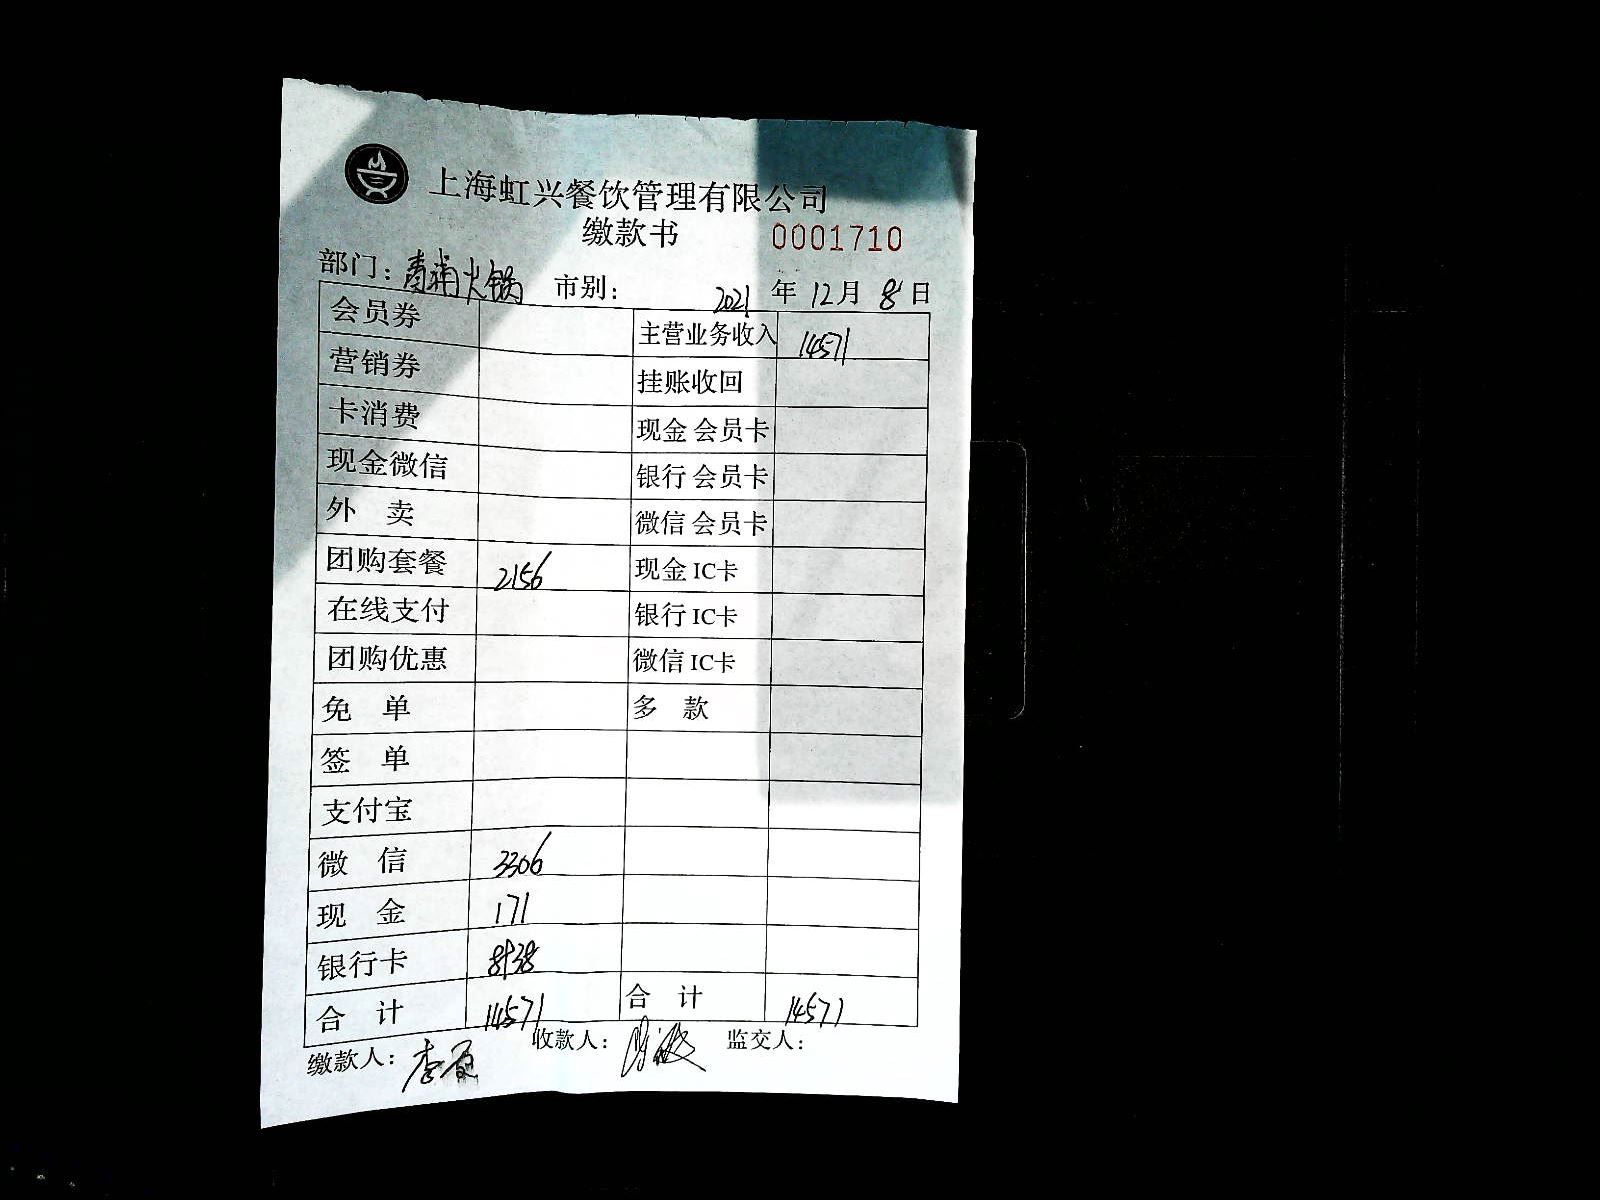 上海虹兴餐饮管理有限公司
缴款书 0001710
部门：青浦火锅 市别： 2021 年 12 月 8 日
会员券 主营业务收入 14571
营销券 挂账收回
卡消费 现金 会员卡
现金微信 银行 会员卡
外 卖 微信 会员卡
团购套餐 2156 现金 IC卡
在线支付 银行 IC卡
团购优惠 微信 IC卡
免 单 多 款
签 单
支付宝
微 信 3306
现 金 171
银行卡 8938
合 计 14571 合 计 14571
缴款人： 李 收款人： 监交人：